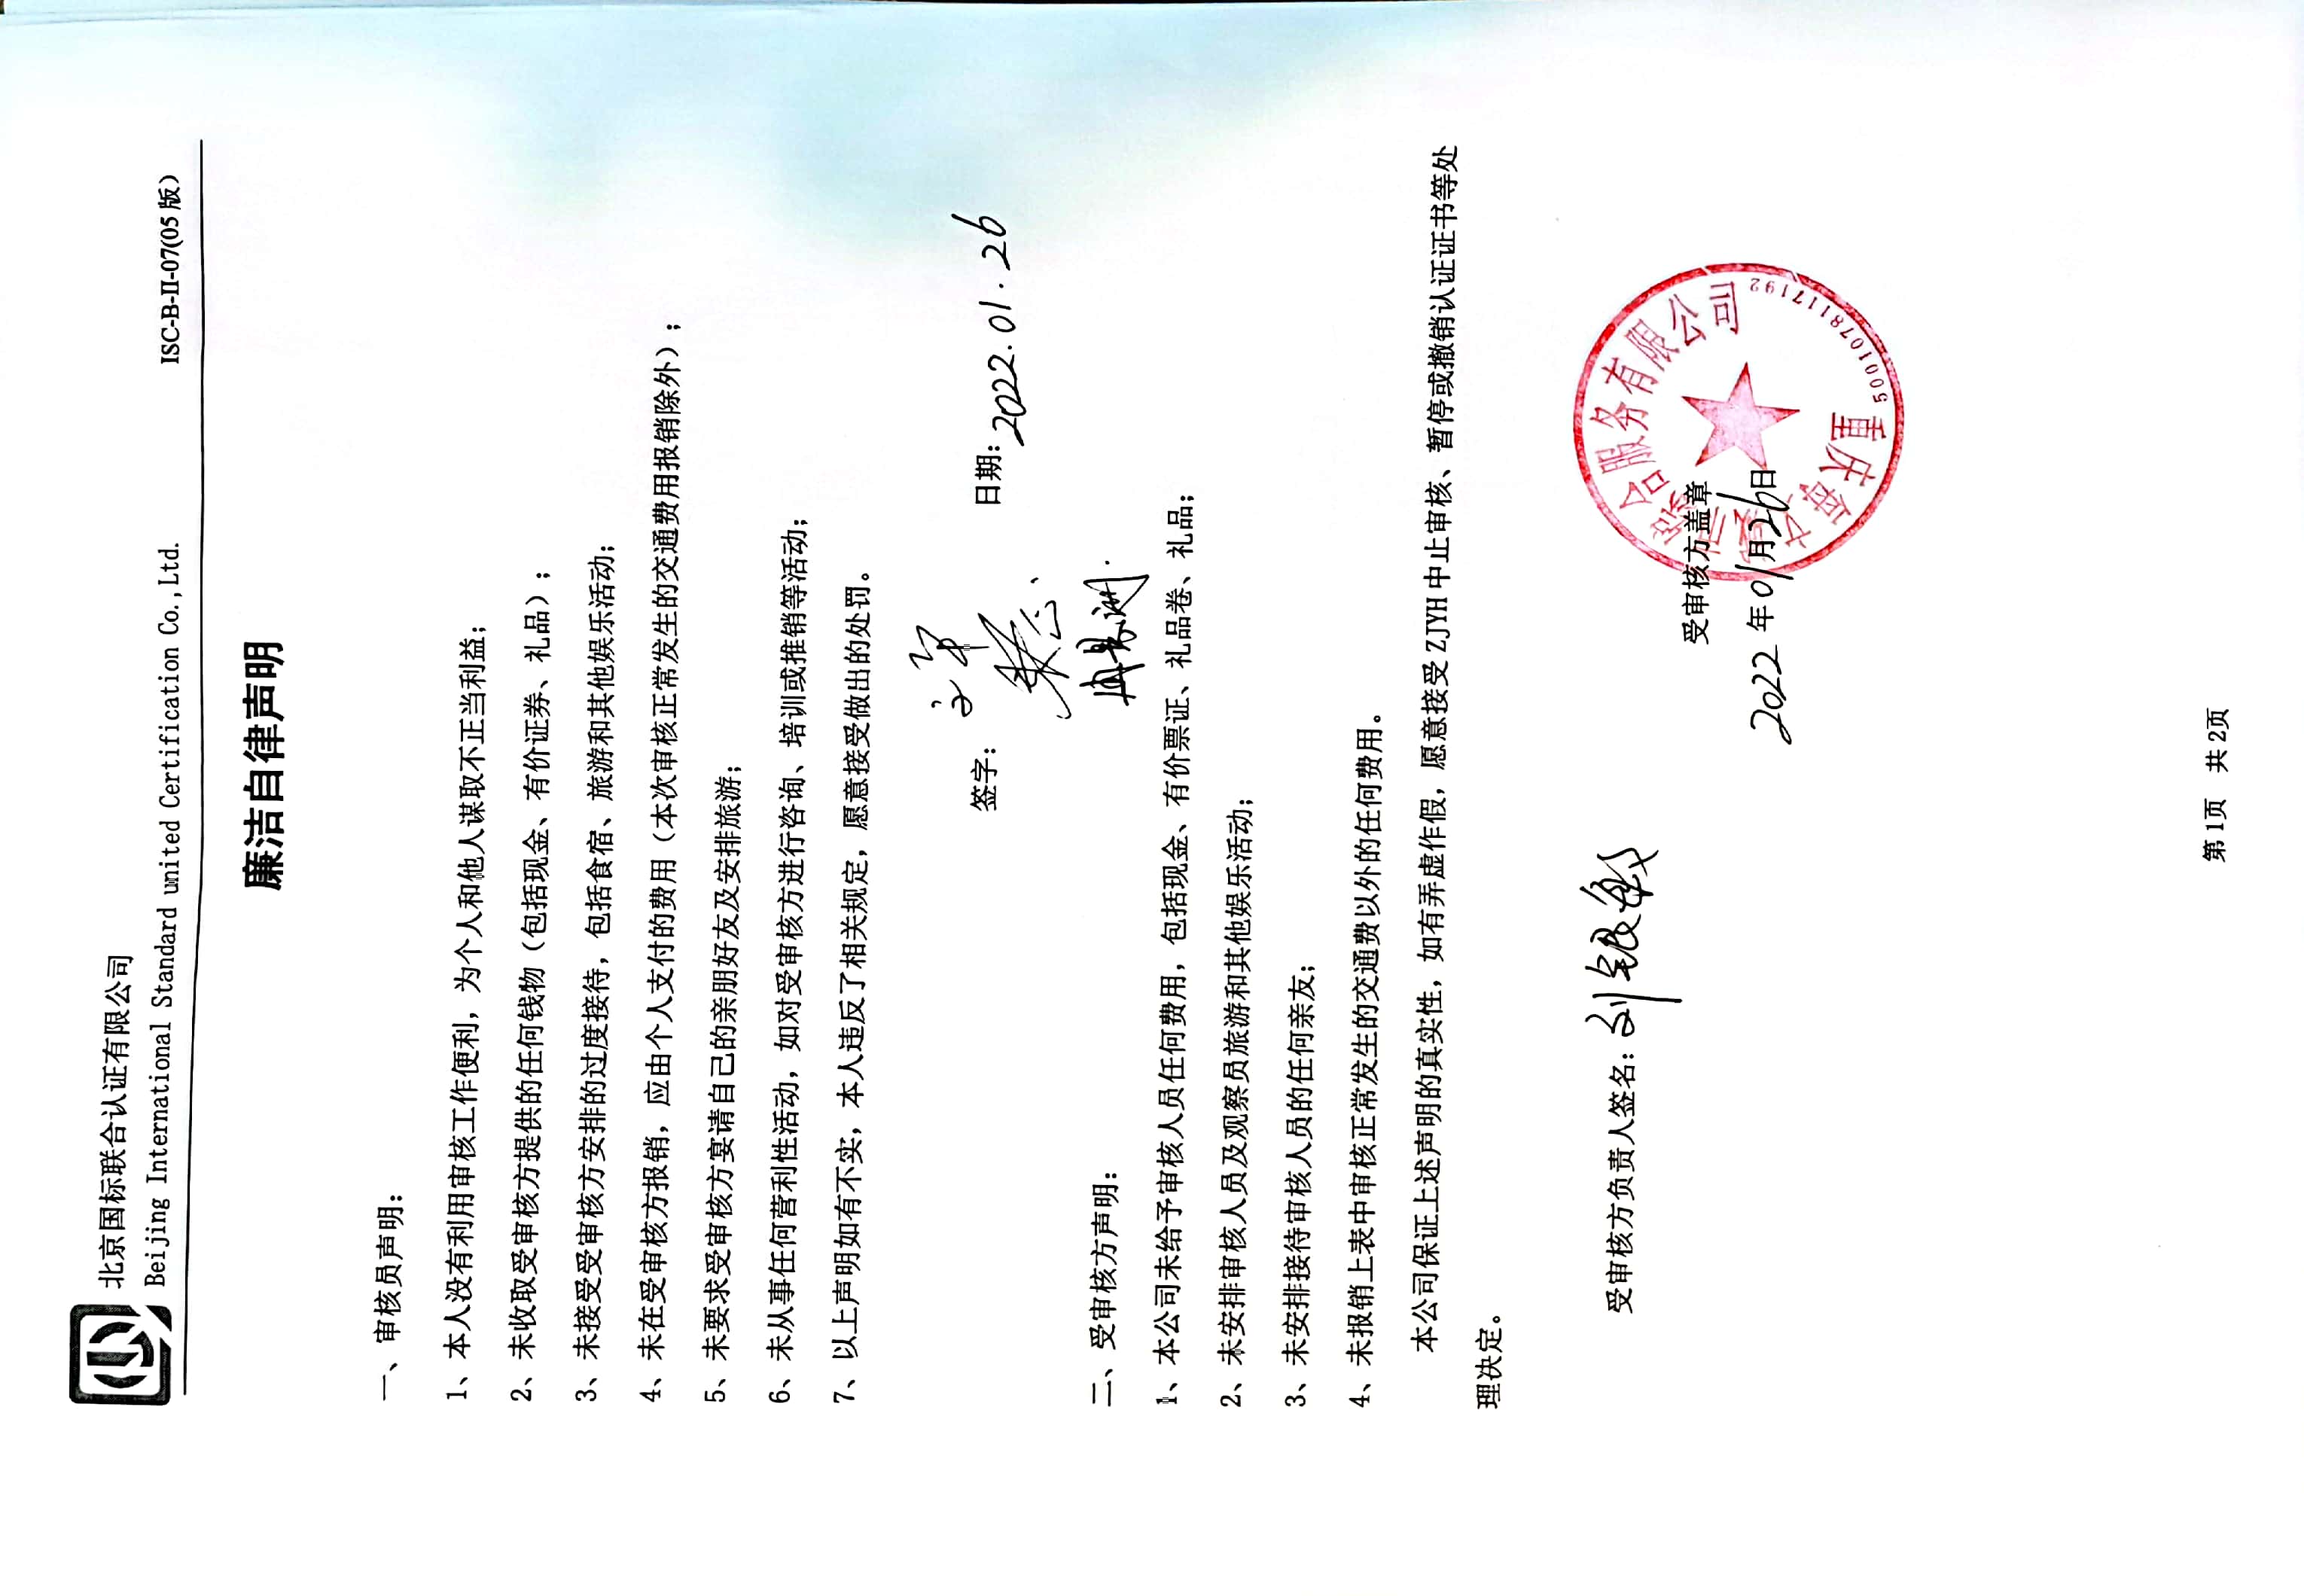 北京国标联合认证有限公司
Beijing International Standard united Certification Co.,Ltd.
ISC-B-II-07(05版)
廉洁自律声明
一、审核员声明：
1、本人没有利用审核工作便利，为个人和他人谋取不正当利益；
2、未收取受审核方提供的任何钱物（包括现金、有价证券、礼品）；
3、未接受受审核方安排的过度接待，包括食宿、旅游和其他娱乐活动；
4、未在受审核方报销，应由个人支付的费用（本次审核正常发生的交通费用报销除外）；
5、未要求受审核方宴请自己的亲朋好友及安排旅游；
6、未从事任何营利性活动，如对受审核方进行咨询、培训或推销等活动；
7、以上声明如有不实，本人违反了相关规定，愿意接受做出的处罚。
签字：
日期：2022.01.26
二、受审核方声明：
1、本公司未给予审核人员任何费用，包括现金、有价票证、礼品卷、礼品；
2、未安排审核人员及观察员旅游和其他娱乐活动；
3、未安排接待审核人员的任何亲友；
4、未报销上表中审核正常发生的交通费以外的任何费用。
本公司保证上述声明的真实性，如有弄虚作假，愿意接受 ZJYH 中止审核、暂停或撤销认证证书等处
理决定。
受审核方负责人签名：刘银敏
受审核方盖章
2022年01月26日
重庆 服务有限公司
5001078117192
第1页 共2页